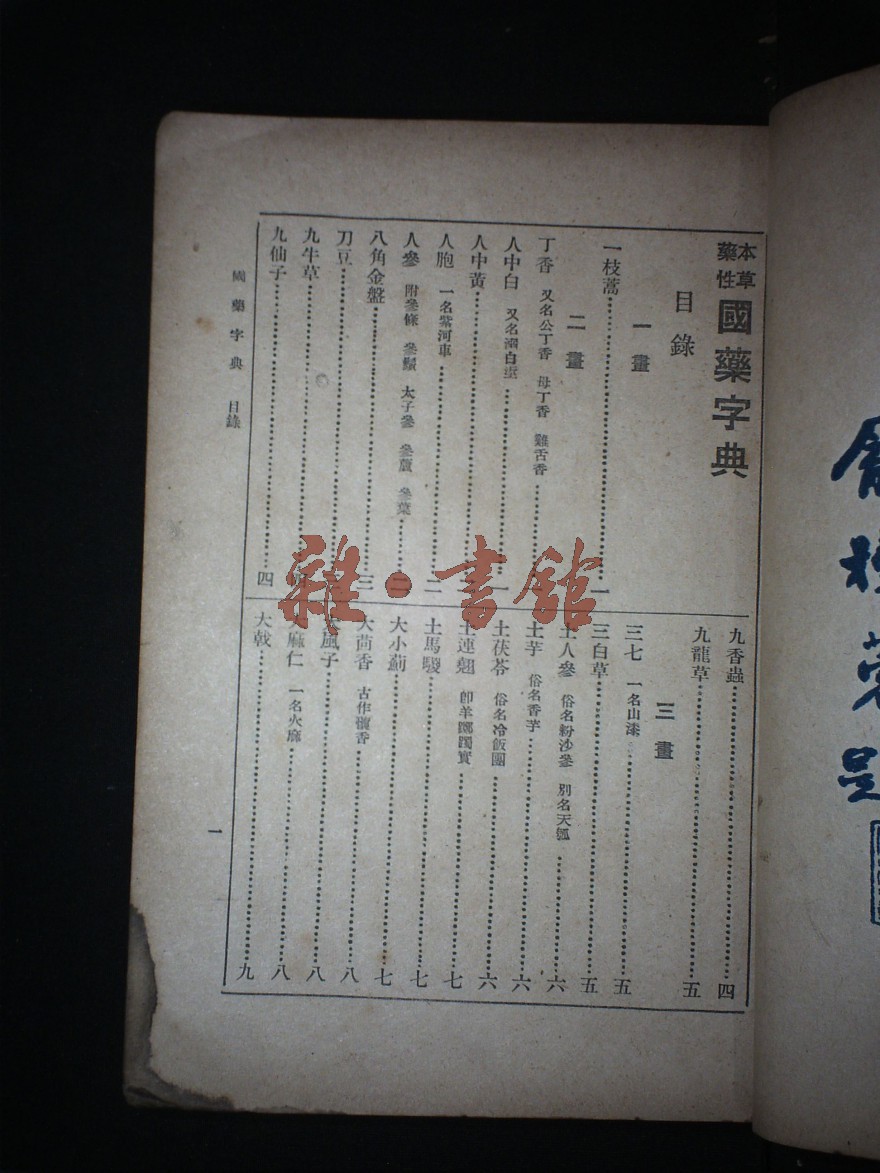 本草
藥性
國藥字典
目錄
一畫
一枝蒿 一
二畫
丁香 又名公丁香 母丁香 雞舌香
人中白 又名溺白垽
人中黃
人胞 一名紫河車 二
人參 附參條 參鬚 太子參 參蘆 參葉 二
八角金盤 三
刀豆
九牛草
九仙子 四
九香蟲 四
九龍草 五
三畫
三七 一名山漆 五
三白草 五
土人參 俗名粉沙參 別名天瓠 六
土芋 俗名香芋 六
土茯苓 俗名冷飯團 六
土連翹 卽羊躑躅實 七
土馬騣 七
大小薊 七
大茴香 古作蘹香 八
大風子 八
大麻仁 一名火麻 八
大戟 九
國藥字典 目錄
一
雜·書館
題